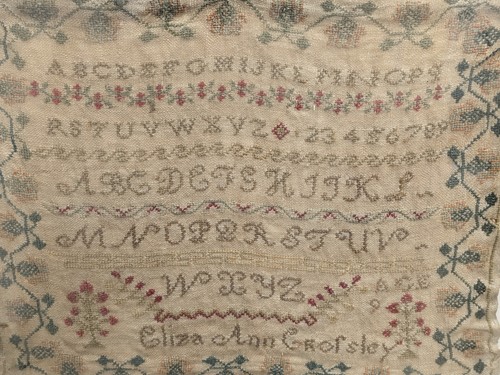 ABCDEFGHIJKLMNOPQ
RSTUVWXYZ 123456789
ABCDEFGHIJKL
MNOPQRSTUV
WXYZ
AGE
9
Eliza Ann Croſsley